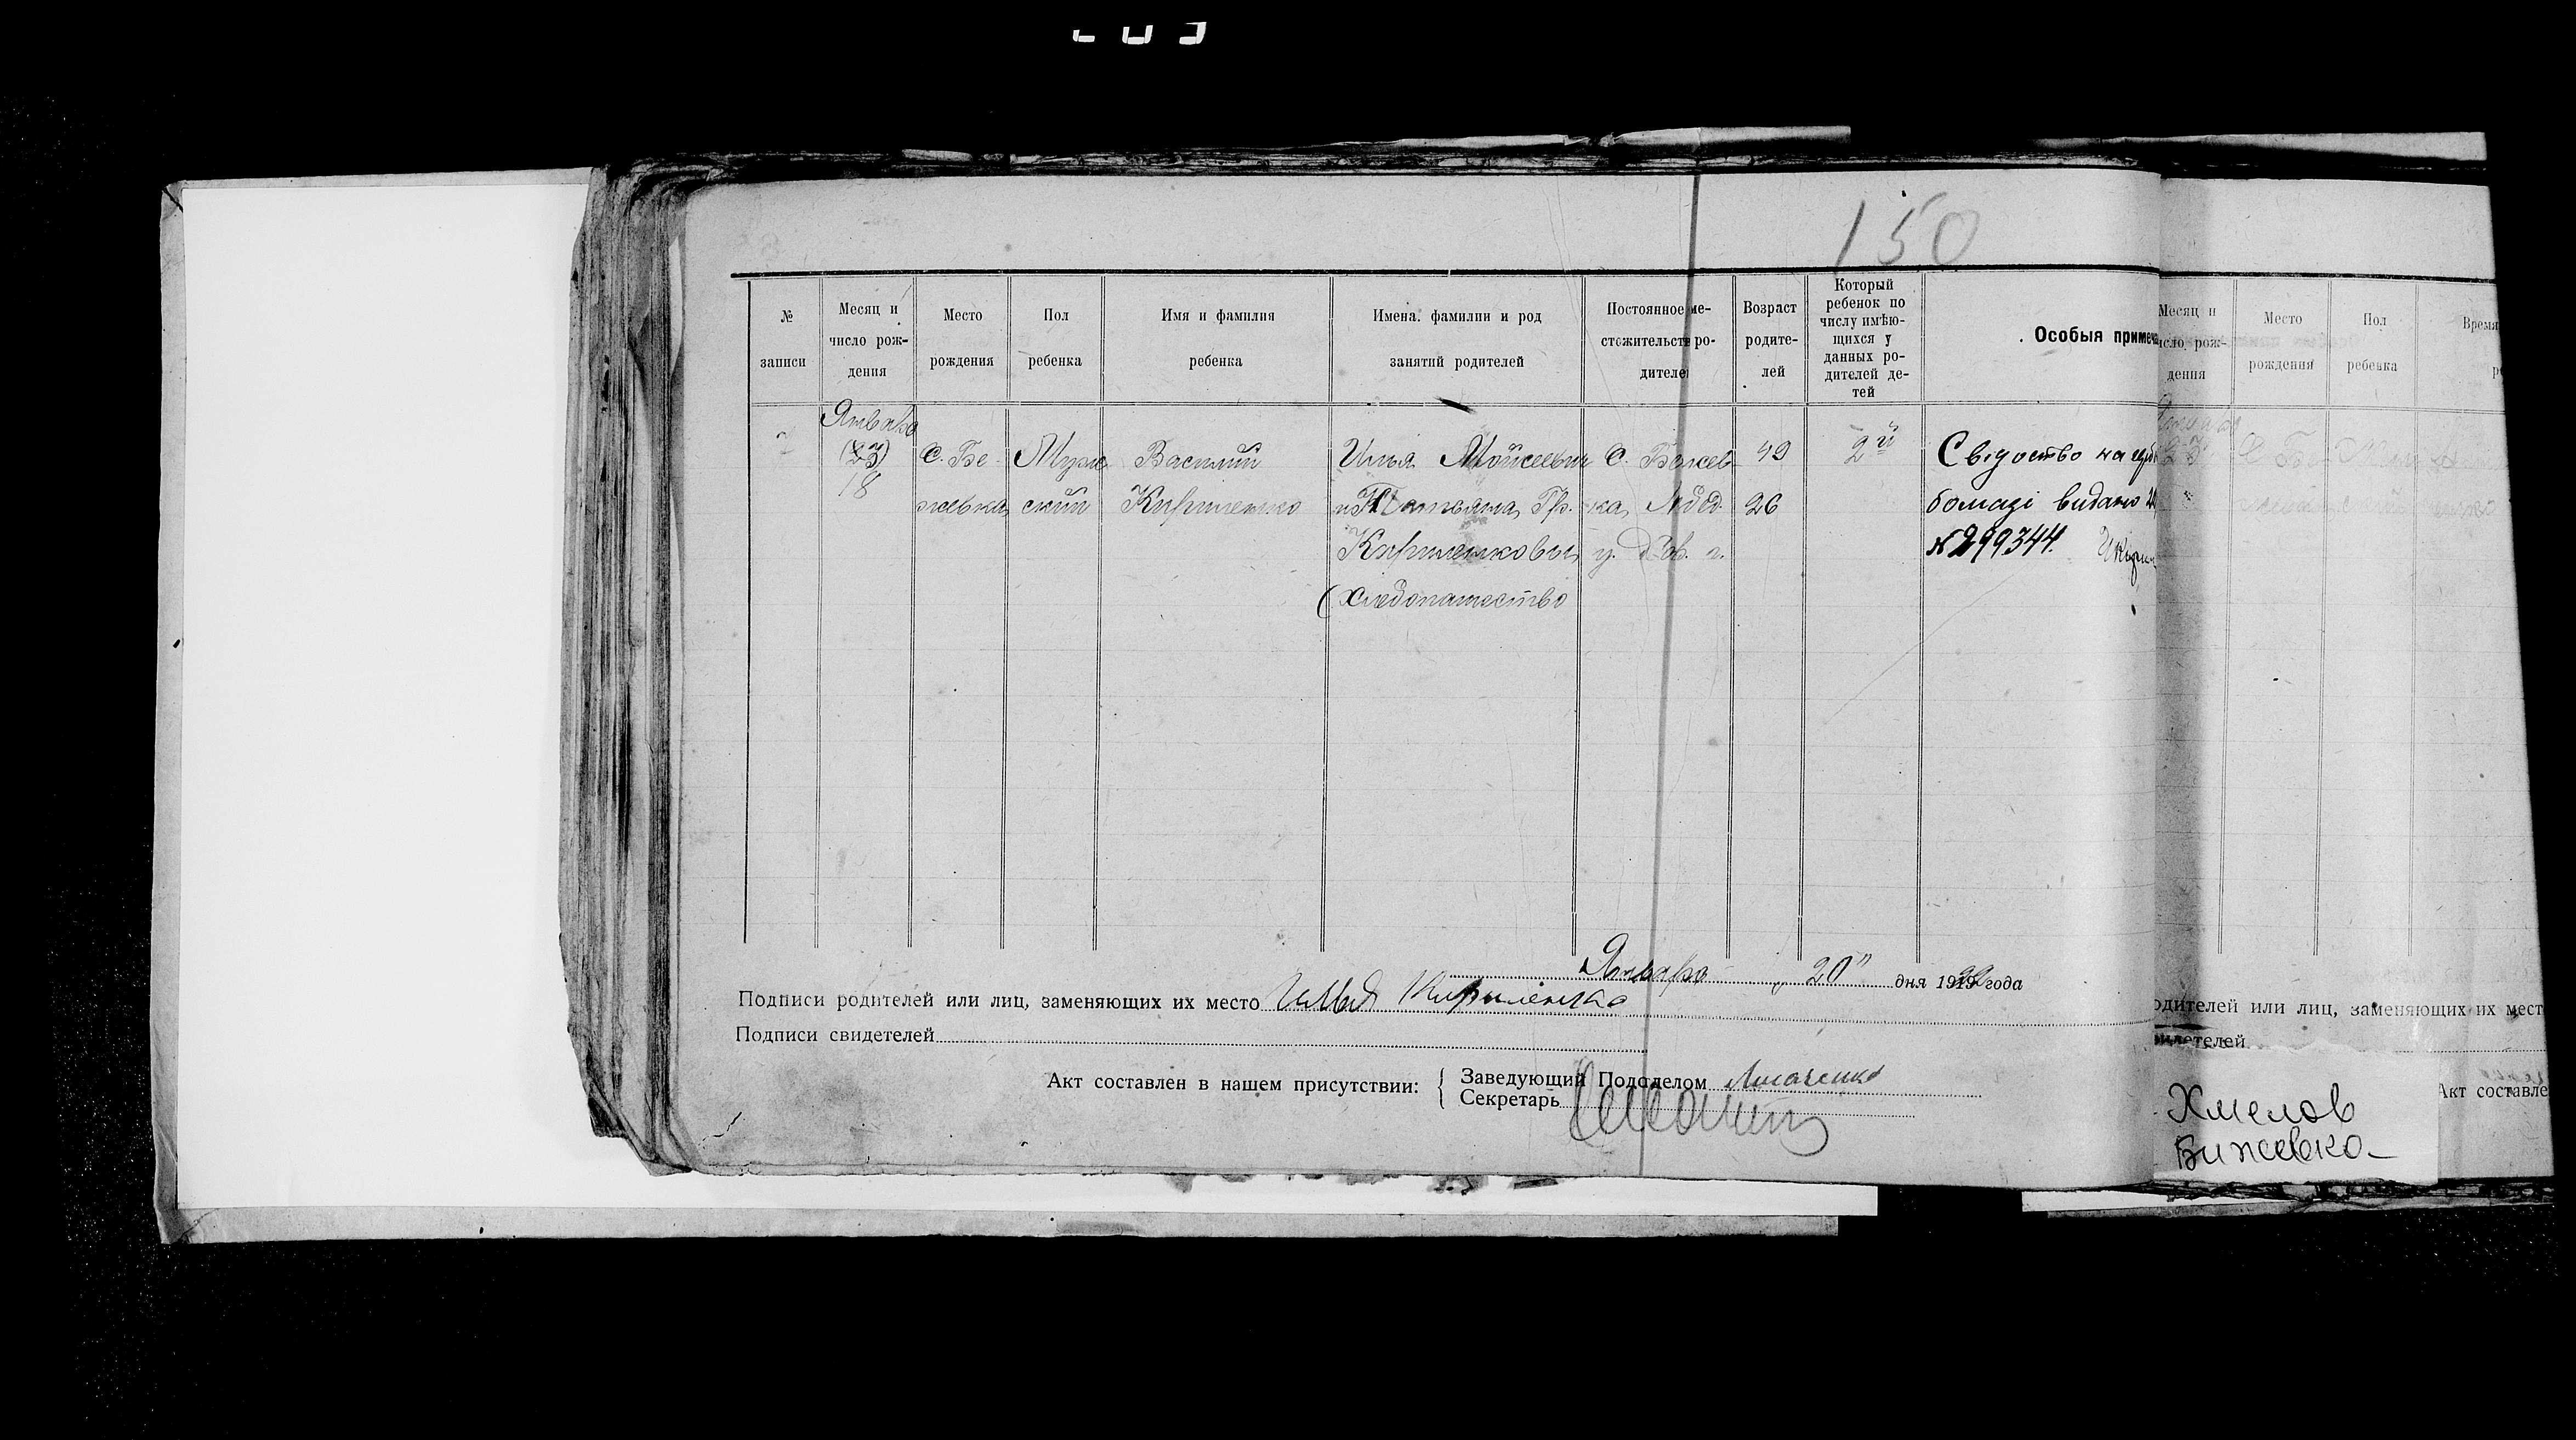 150
№ записи
Месяц и число рож-дения
Место рождения
Пол ребенка
Имя и фамилия ребенка
Имена. фамилии и род занятий родителей
Постоянное ме-
стожительств ро-
дителе
Возраст родите-лей
Который
ребенок по
числу имѣю-
щихся у
данных ро-
дителей де-
тей
Особыя примеча
Января
(23)
18
С. Бе-
жевка
Муж-
ский
Василий
Кириленко
Илья Мойсеевич
и Татьяна Гр.
Кириленковы
(Хлебопашество
С. Бежев-
ка,
49
26
2й
Свідоство на
бомазі видано
№299344.
Января 20" дня 1922 года
Подписи родителей или лиц, заменяющих их место Илья Кириленко
Подписи свидетелей
Акт составлен в нашем присутствии:
Заведующий Подотделом
Секретарь
Месяц и
число рож-
дения
Место
рождения
Пол
ребенка
Время
одителей или лиц, заменяющих их мест
видетелей
Акт составле
Хмелов
Бижевка